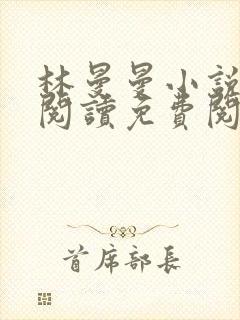 林曼曼小說
閱讀免費閱
首席部長